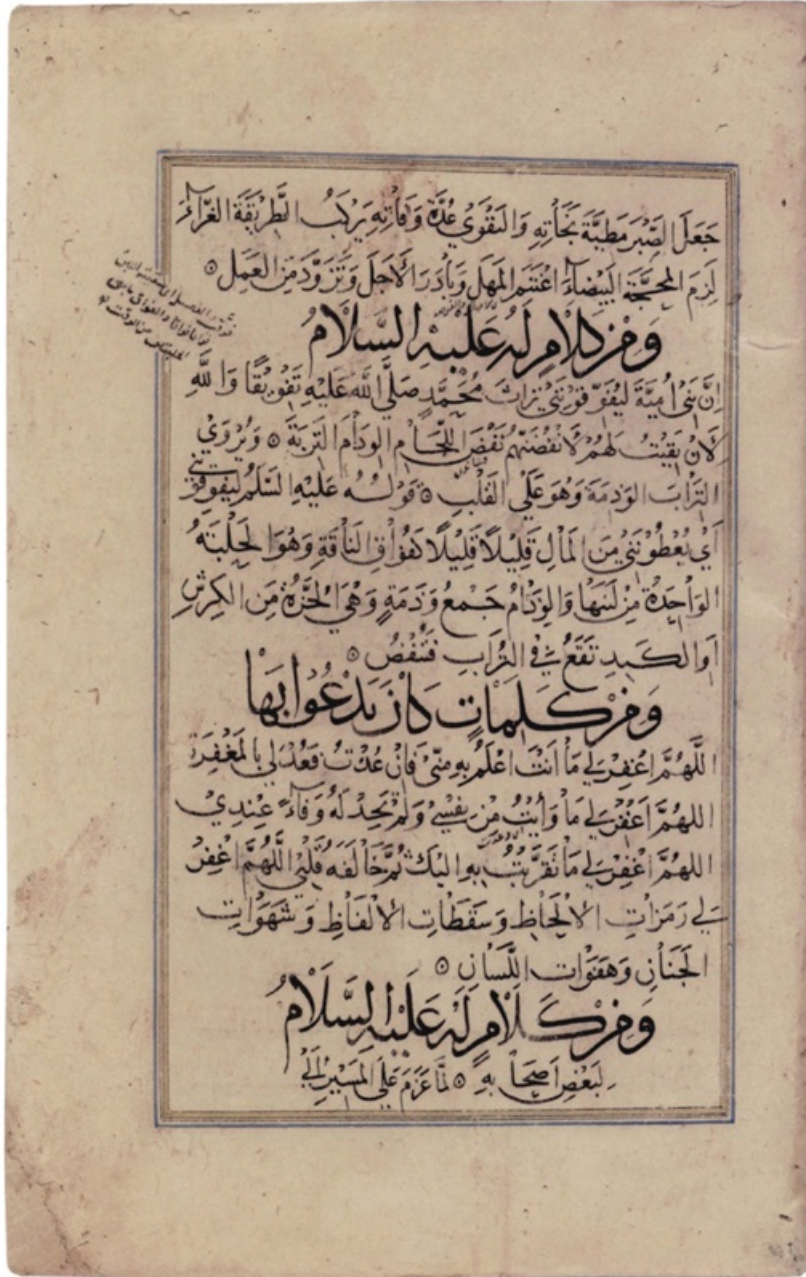 جَعَلَ الصَّبْرَ مَطِيَّةَ نَجَاتِهِ وَالتَّقْوَي عُدَّةَ وَفَاتِهِ يَرْكَبُ الطَّرِيقَةَ الغَرَّاءَ
لَزِمَ المَحَجَّةَ البَيْضَاءَ اغْتَنَمَ المَهَلَ وَبَادَرَ الأَجَلَ وَتَزَوَّدَ مِنَ العَمَلِ ۞
وَمِنْ كَلَامٍ لَهُ عَلَيْهِ السَّلَامُ
اِنَّ بَنِي اُمَيَّةَ لَيُفَوِّقُونَنِي تُرَاثَ مُحَمَّدٍ صَلَّي اللّٰهُ عَلَيْهِ تَفْوِيقًا وَاللّٰهِ
لَانْ بَقِيتُ لَهُمْ لَانْفُضَنَّهُمْ نَفْضَ اللَّحَّامِ الوِدَامَ التَّرِبَةَ ۞ وَيُرْوَي
التُّرَابَ الوَذِمَةَ وَهُوَ عَلَي القَلْبِ ۞ قَوْلُهُ عَلَيْهِ السَّلَمُ لَيُفَوِّقُونَنِي
اَيْ يُعْطُونَنِي مِنَ المَالِ قَلِيلًا قَلِيلًا كَفُوَاقِ النَّاقَةِ وَهُوَ الحَلْبَةُ
الوَاحِدَةُ مِنْ لَبَنِهَا وَالوِذَامُ جَمْعُ وَذَمَةٍ وَهِيَ الحُزَّةُ مِنَ الكَرِشِ
اَوِ الكَبِدِ تَقَعُ فِي التُّرَابِ فَتُنْفَضُ ۞
وَمِنْ كَلِمَاتٍ كَانَ يَدْعُوا بِهَا
اللَّهُمَّ اغْفِرْ لِي مَا اَنْتَ اَعْلَمُ بِهِ مِنِّي فَاِنْ عُدْتُ فَعُدْ لِي بِالمَغْفِرَةِ
اللهُمَّ اغْفِرْ لِي مَا وَأَيْتُ مِنْ نَفْسِي وَلَمْ تَجِدْ لَهُ وَفَاءً عِنْدِي
اللهُمَّ اغْفِرْ لِي مَا تَقَرَّبْتُ بِهِ اِلَيْكَ ثُمَّ خَالَفَهُ قَلْبِي اللَّهُمَّ اغْفِرْ
لِي رَمَزَاتِ الاَلْحَاظِ وَسَقَطَاتِ الاَلْفَاظِ وَشَهَوَاتِ
الجَنَانِ وَهَفَوَاتِ اللِّسَانِ ۞
وَمِنْ كَلَامٍ لَهُ عَلَيْهِ السَّلَامُ
لِبَعْضِ اَصْحَابِهِ ۞ لَمَّا عَزَمَ عَلَي المَسِيرِ اِلَي